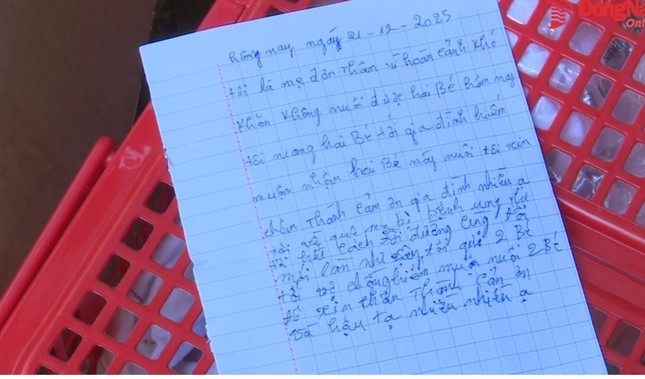 ĐồngNai
Onl
hông nay ngáy 21-12-2025
tôi là mẹ đơn thân vì hoàn cảnh khó
khăn không nuôi được hai Bé hôm nay
tôi mang hai Bé tới gia đình hiếm
muộn nhờm hai Bé nấy nuôi tôi xin
chân thành cảm ơn gia đình nhiều ạ
tôi về quê bị bệnh ung
tôi hết cách đường cùng tôi
mới làm như tôi gửi 2 Bé
tới vợ chồng hiếm muộn nuôi 2 Bé
tôi xin chân thành cảm ơn
và hậu tạ nhiều nhiều ạ